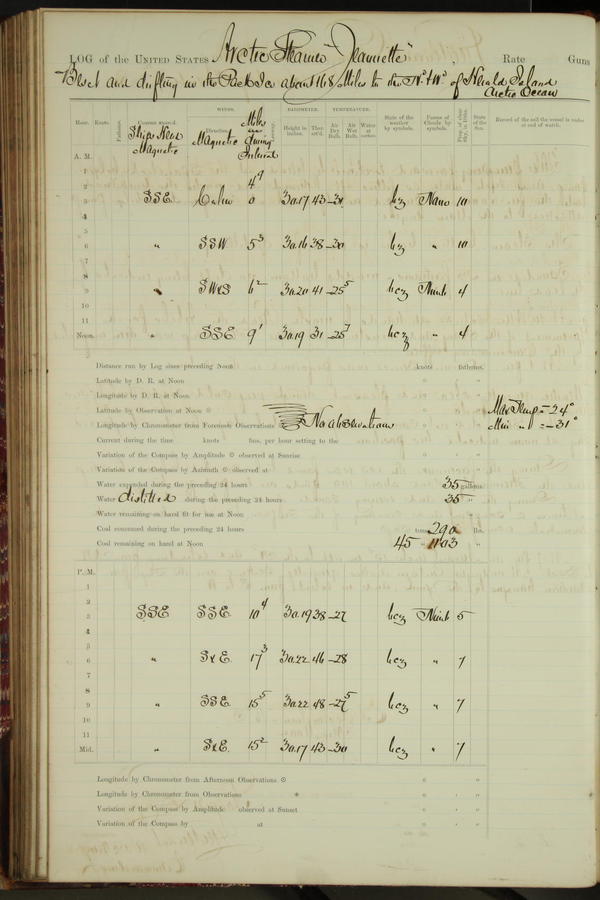 LOG of the UNITED STATES Arctic Steamer "Jeannette" , Rate Guns
Beset and drifting in the Pack Ice about 168 Miles to the Nd & Wd of Herald Island
Arctic Ocean
WINDS. BAROMETER. TEMPERATURE.
Hour. Knots. Fathoms. Courses steered. Direction. Leeway. Height in inches. Ther. att'd. Air Dry Bulb. Air Wet Bulb. Water at surface. State of the weather by symbols. Forms of Clouds by symbols. State of the Sea. Record of the sail the vessel is under at end of watch.
Ship's Head Magnetic Magnetic Miles in during Interval
A. M.
1
2 4 9
3 SSE Calm 0 30.17 43 -31 bcz Nimb 10
4
5
6 " SSW 5 3 30.16 38 -30 " 10
7
8
9 " SWxS 6 2 30.20 41 -25 5 bcz Nimb 4
10
11
Noon. " SSE 9 1 30.19 31 -25 7 bcz " 4
Distance run by Log since preceding Noon knots fathoms.
Latitude by D. R. at Noon
Longitude by D. R. at Noon
Latitude by Observation at Noon Max Temp = -24°
Longitude by Chronometer from Forenoon Observations No observations Min " = -31°
Current during the time knots fms. per hour setting to the
Variation of the Compass by Amplitude observed at Sunrise
Variation of the Compass by Azimuth observed at
Water expended during the preceding 24 hours 35 gallons
Water distilled during the preceding 24 hours 35 "
Water remaining on hand fit for use at Noon
Coal consumed during the preceding 24 hours tons 290 lbs.
Coal remaining on hand at Noon 45 " "
P. M.
1
2 4
3 SSE SSE 10 30.19 38 -27 bcz Nimb 5
4
5
6 " SxE 17 3 30.22 46 -28 bcz " 7
7
8
9 " SSE 15 5 30.22 48 -27 5 bcz " 7
10
11
Mid. " SxE 15 2 30.17 43 -30 bcz " 7
Longitude by Chronometer from Afternoon Observations
Longitude by Chronometer from Observations *
Variation of the Compass by Amplitude observed at Sunset
Variation of the Compass by at